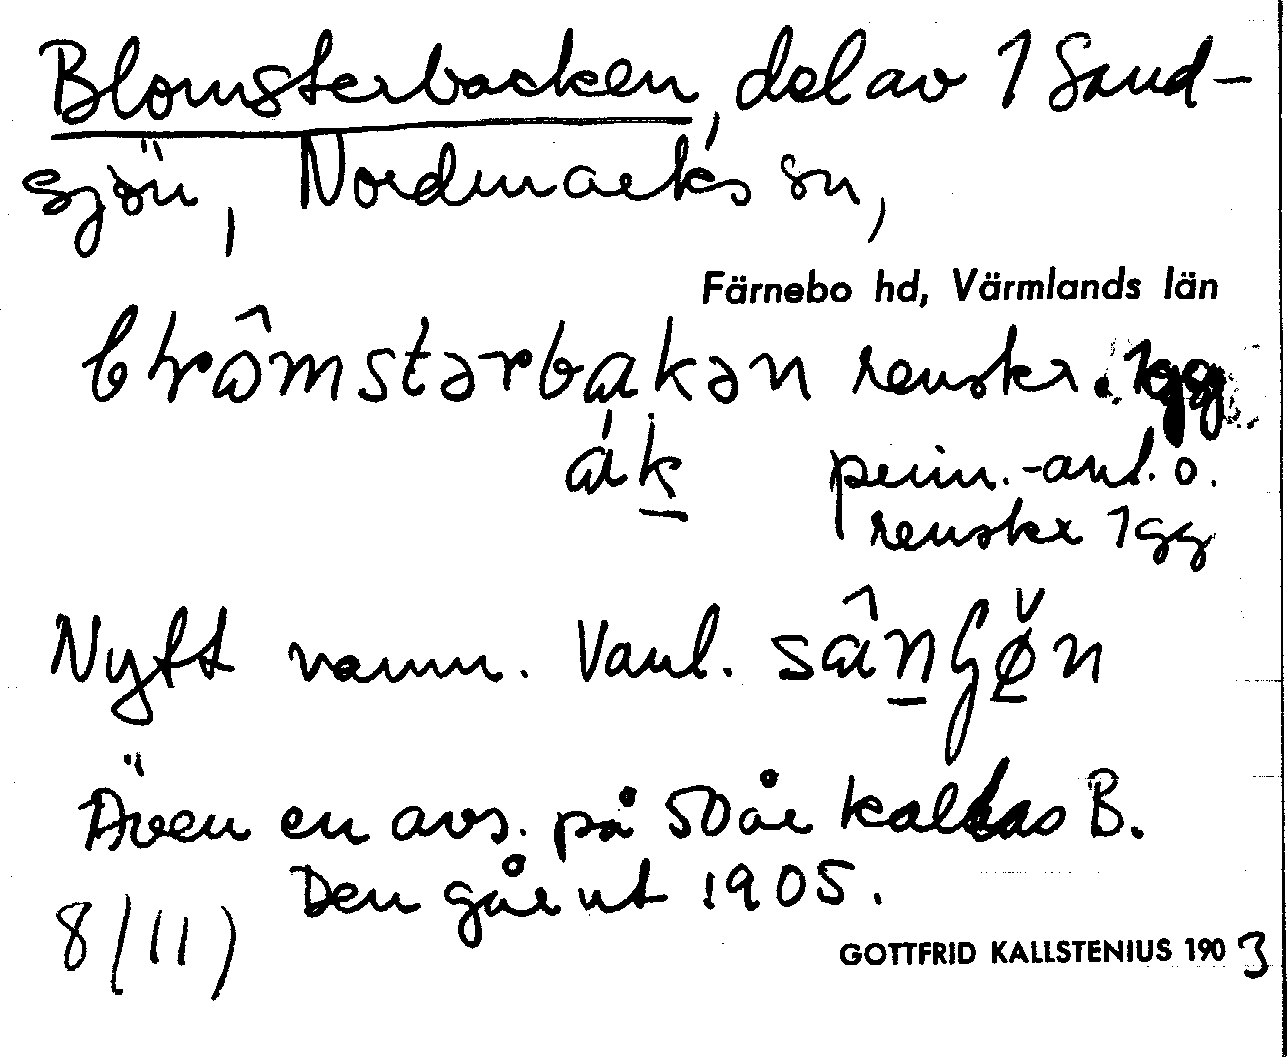 Blomsterbacken, del av 1 Sand-
sjön, Nordmarks sn,
Färnebo hd, Värmlands län
renskr. 1gg
ák
penn.-ant. o.
renskr 1gg
Nytt namn. Vanl.
Även en avs. på 50 år kallas B.
Den går ut 1905.
8/11)
GOTTFRID KALLSTENIUS 1903